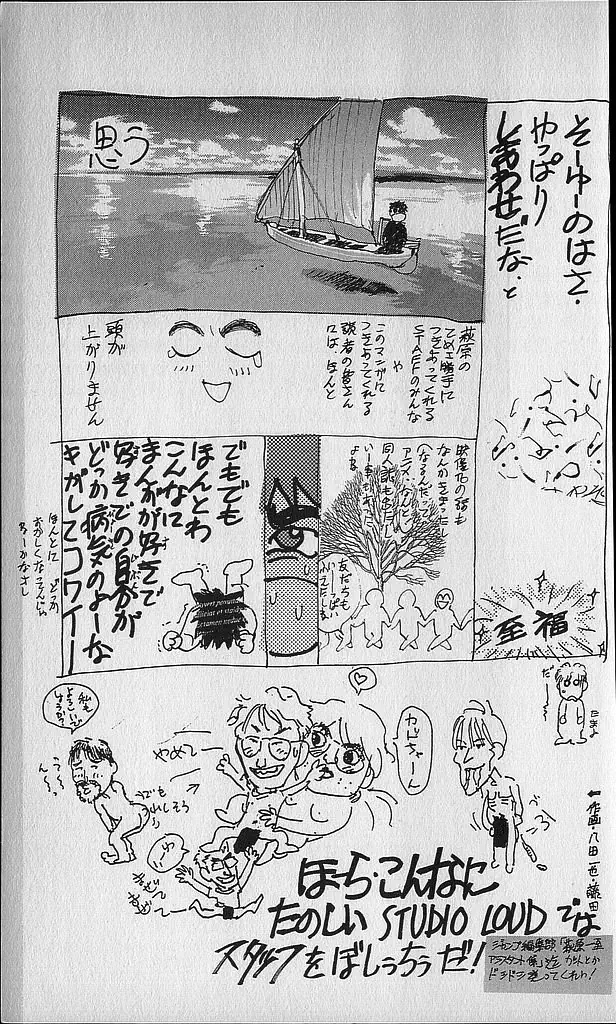 そーゆーのはさ・
やっぱり
しあわせだな、と
思う
萩原の
てめェ勝手に
つきあってくれる
STAFFのみんな
や
このマンガに
つきあってくれる
読者の皆さん
には、ほんと
頭が
上がりません
映像化の話も
なんかきまったし
(なるんだって
アニメになんに)
いー事もあった
よな
友だちも
いっぱい
至福
でもでも
ほんとわ
こんなに
まんがが好きで
好きでの自分が
どっか病気のよーな
キがしてコワイー
ほんとに どっか
おかしくなってんじゃ
ねーかなさし
私も
よろしいで
しょうか?
う〜
ん〜
でも
うれしそう
やめて〜
カドちゃーん
だ〜
←作画・八田一也・藤田
ほーら・こんなに
たのしい STUDIO LOUD では
スタッフをぼしうちうだ!
ジャンプ編集部「萩原一至
アシスタント係」迄 カットとか
ドシドシ送ってくれっ!